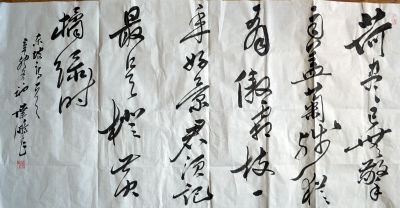 荷尽已無擎
雨盖菊残猶
有傲霜枝一
年好景君须记
最是橙黄
橘绿时
东坡诗